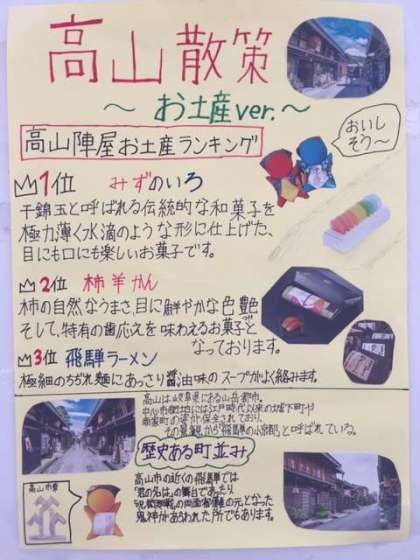 高山散策
〜お土産ver.〜
おいし
そう〜
高山陣屋お土産ランキング
1位 みずのいろ
干錦玉と呼ばれる伝統的な和菓子を
極力薄く水滴のような形に仕上げた、
目にも口にも楽しいお菓子です。
2位 柿羊かん
柿の自然なうまさ、目に鮮やかな色艶
そして、特有の歯応えを味わえるお菓子と
なっております。
3位 飛騨ラーメン
極細のちぢれ麺にあっさり醤油味のスープがよく絡みます。
高山は岐阜県にある山岳都市。
中心市街地には江戸時代以来の城下町や
商家町の
保全されており、
その景観から「飛騨の小京都」と呼ばれている。
歴史ある町並み
高山市章
高山市の近くの飛騨では
「君の名は」の舞台であったり
の両面宿儺の元となった
鬼神があらわれた所でもあります。